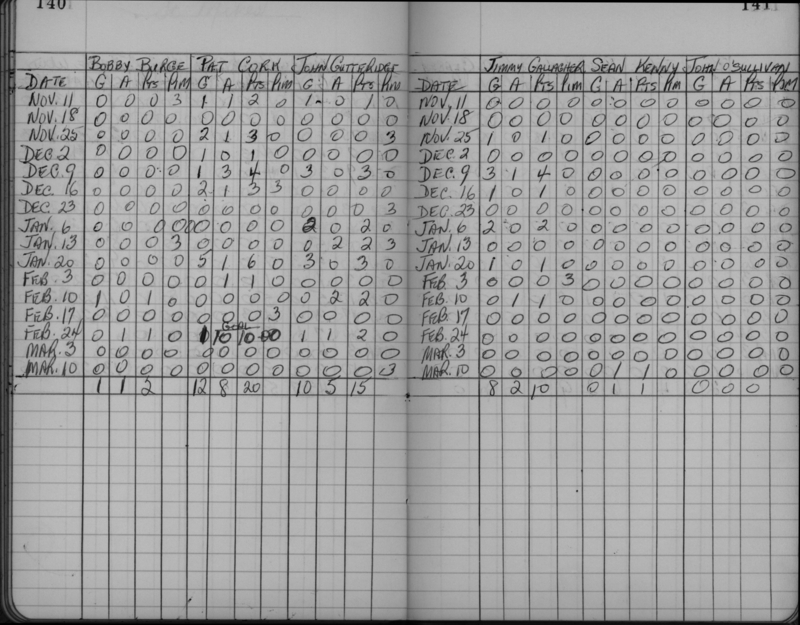 140
BOBBY BURGE PAT CORK JOHN GUTTERIDGE
DATE G A Pts Pim G A Pts Pim G A Pts Pim
NOV. 11 0 0 0 3 1 1 2 0 1 0 1 0
NOV. 18 0 0 0 0 0 0 0 0 0 0 0 0
NOV. 25 0 0 0 0 2 1 3 0 0 0 0 3
DEC. 2 0 0 0 0 1 0 1 0 0 0 0 0
DEC. 9 0 0 0 0 1 3 4 0 3 0 3 0
DEC. 16 0 0 0 0 2 1 3 3 0 0 0 0
DEC. 23 0 0 0 0 0 0 0 0 0 0 0 3
JAN. 6 0 0 0 0 0 0 0 0 2 0 2 0
JAN. 13 0 0 0 3 0 0 0 0 0 2 2 3
JAN. 20 0 0 0 0 5 1 6 0 3 0 3 0
FEB. 3 0 0 0 0 0 1 1 0 0 0 0 0
FEB. 10 1 0 1 0 0 0 0 0 0 2 2 0
FEB. 17 0 0 0 0 0 0 0 3 0 0 0 0
GOAL
FEB. 24 0 1 1 0 1 1 2 0
MAR. 3 0 0 0 0 0 0 0 0 0 0 0 0
MAR. 10 0 0 0 0 0 0 0 0 0 0 0 3
1 1 2 12 8 20 10 5 15
141
JIMMY GALLAGHER SEAN KENNY JOHN O'SULLIVAN
DATE G A Pts Pim G A Pts Pim G A Pts Pim
NOV. 11 0 0 0 0 0 0 0 0 0 0 0 0
NOV. 18 0 0 0 0 0 0 0 0 0 0 0 0
NOV. 25 1 0 1 0 0 0 0 0 0 0 0 0
DEC. 2 0 0 0 0 0 0 0 0 0 0 0 0
DEC. 9 3 1 4 0 0 0 0 0 0 0 0 0
DEC. 16 1 0 1 0 0 0 0 0 0 0 0 0
DEC. 23 0 0 0 0 0 0 0 0 0 0 0 0
JAN. 6 2 0 2 0 0 0 0 0 0 0 0 0
JAN. 13 0 0 0 0 0 0 0 0 0 0 0 0
JAN. 20 1 0 1 0 0 0 0 0 0 0 0 0
FEB. 3 0 0 0 3 0 0 0 0 0 0 0 0
FEB. 10 0 1 1 0 0 0 0 0 0 0 0 0
FEB. 17 0 0 0 0 0 0 0 0 0 0 0 0
FEB. 24 0 0 0 0 0 0 0 0 0 0 0 0
MAR. 3 0 0 0 0 0 0 0 0 0 0 0 0
MAR. 10 0 0 0 0 0 1 1 0 0 0 0 0
8 2 10 0 1 1 0 0 0